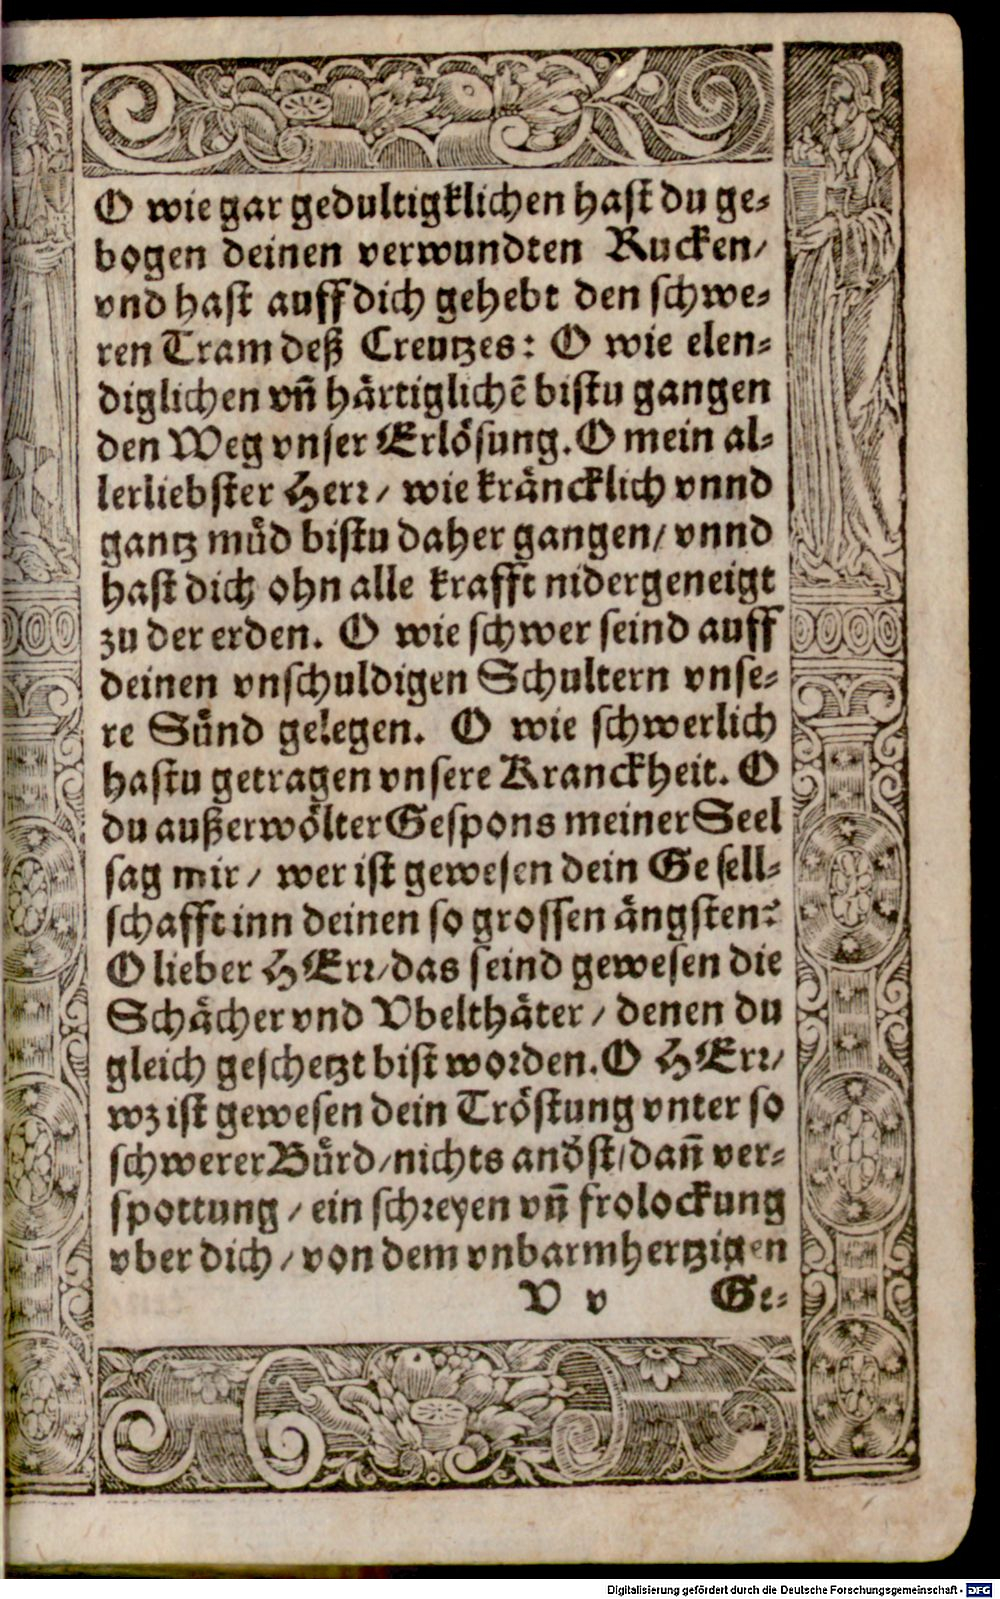 O wie gar gedultigklichen hast du ge-
bogen deinen verwundten Rucken/
vnd hast auff dich gehebt den schwe-
ren Tram deß Creutzes: O wie elen-
diglichen vñ härtiglichē bistu gangen
den Weg vnser Erlösung. O mein al-
lerliebster Herr/ wie kräncklich vnnd
gantz müd bistu daher gangen/ vnnd
hast dich ohn alle krafft nidergeneigt
zu der erden. O wie schwer seind auff
deinen vnschuldigen Schultern vnse-
re Sünd gelegen. O wie schwerlich
hastu getragen vnsere Kranckheit. O
du außerwölter Gespons meiner Seel
sag mir/ wer ist gewesen dein Gesell-
schafft inn deinen so grossen ängsten?
O lieber HErr/ das seind gewesen die
Schächer vnd Vbelthäter/ denen du
gleich geschetzt bist worden. O HErr/
wz ist gewesen dein Tröstung vnter so
schwerer Bürd/ nichts anderst/ dañ ver-
spottung/ ein schreyen vñ frolockung
vber dich/ von dem vnbarmhertzigen
V v Ge-
Digitalisierung gefördert durch die Deutsche Forschungsgemeinschaft - DFG